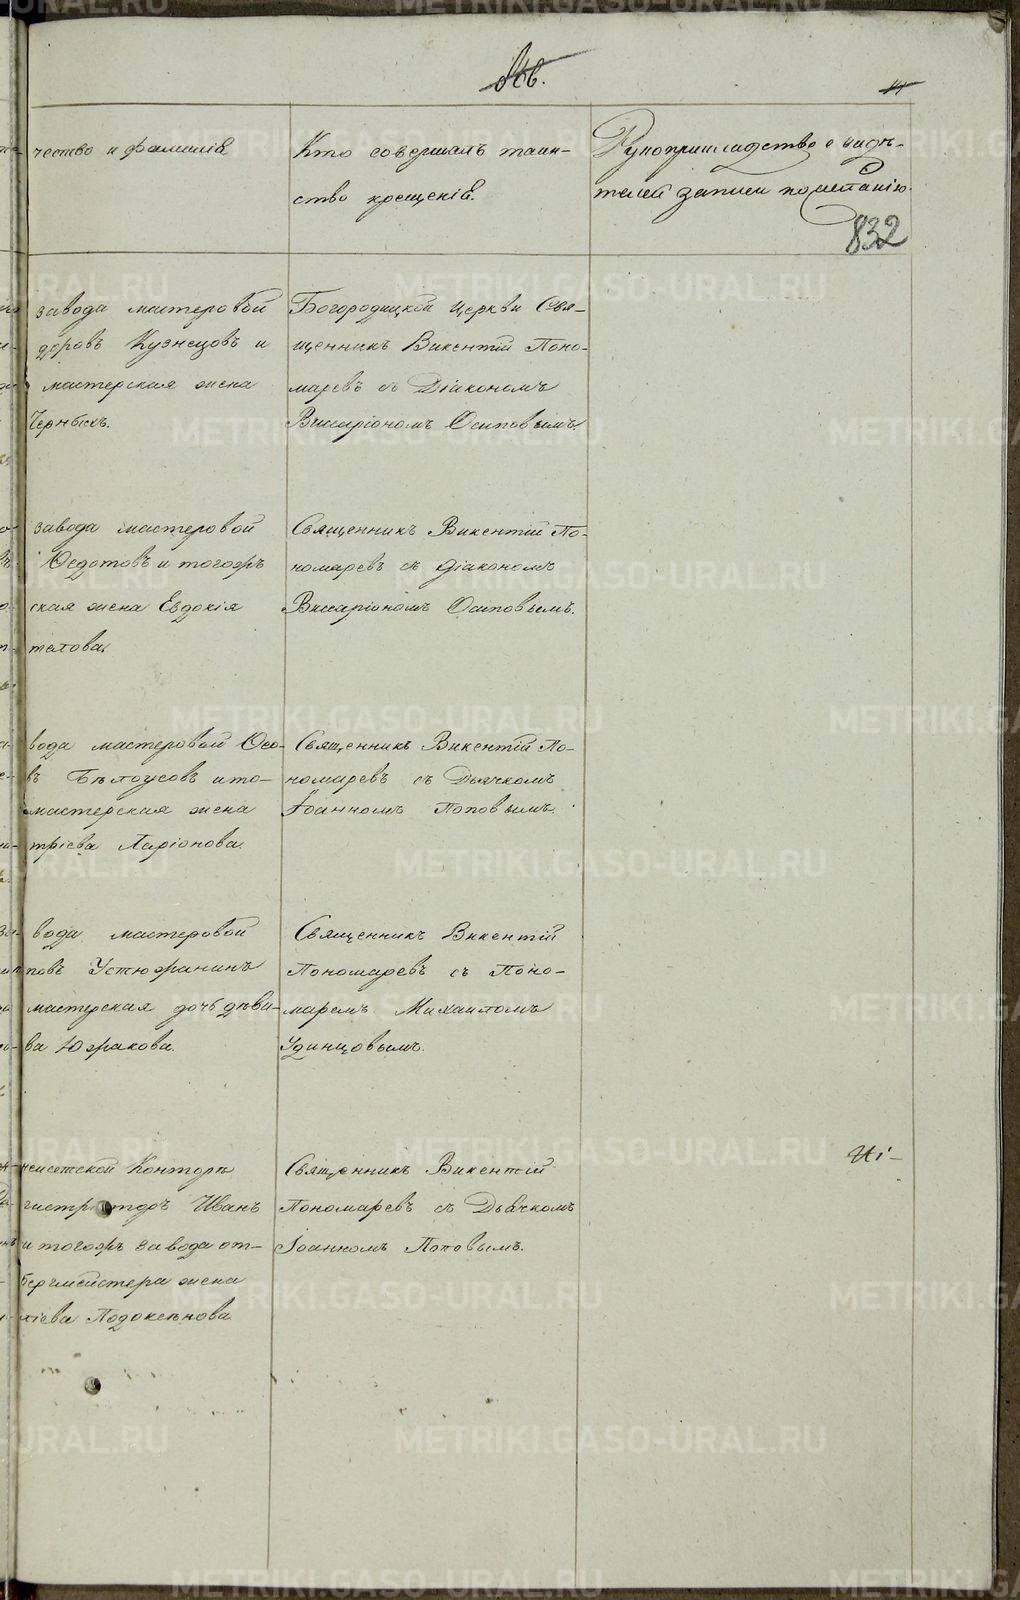 14
чество и фамилія
Кто совершалъ таин-
ство крещенія.
Рукоприкладство свидѣ-
телей записи по желанію.
832
завода мастеровой
доровъ Кузнецовъ и
мастерская жена
Богородицкой церкви Свя-
щенникъ Викентій Поно-
маревъ съ Діакономъ
Висаріономъ Осиповымъ.
завода мастеровой
Ѳедотовъ и тогожъ
ская жена Евдокія
телова.
Священникъ Викентій По-
номаревъ съ діакономъ
Висаріономъ Осиповымъ.
вода мастеровой Ѳео-
въ Бѣлоусовъ и то-
мастерская жена
тріева Ларіонова.
Священникъ Викентій По-
номаревъ съ Дьячкомъ
Іоанномъ Поповымъ.
вода мастеровой
повъ Устюжанинъ
мастерская дочь дѣви-
ва Южакова.
Священникъ Викентій
Пономаревъ съ Поно-
маремъ Михаиломъ
Удинцовымъ.
исетской Конторы
гистраторъ Иванъ
и тогожъ завода от-
бергмейстера жена
хіева Подоксенова.
Священникъ Викентій
Пономаревъ съ Дьячкомъ
Іоанномъ Поповымъ.
METRIKI.GASO-URAL.RU